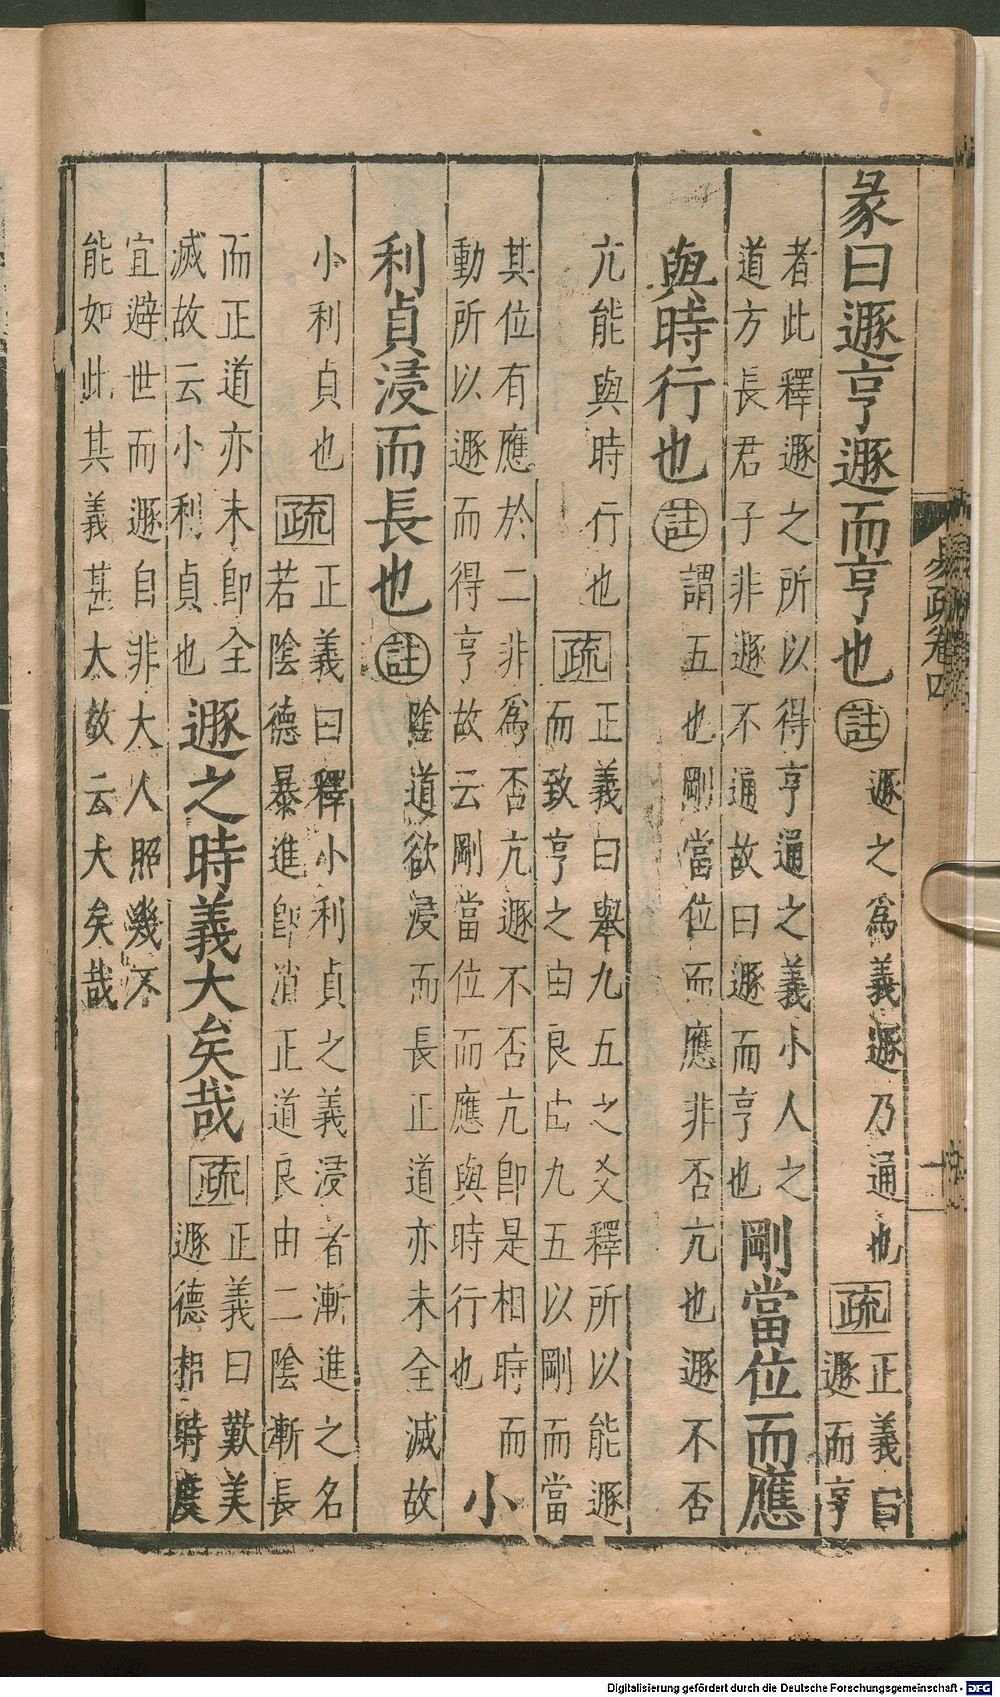 彖曰遯亨遯而亨也註遯之爲義遯乃通也疏正義曰遯而亨
者此釋遯之所以得亨通之義小人之
道方長君子非遯不通故曰遯而亨也剛當位而應
與時行也註謂五也剛當位而應非否亢也遯不否
亢能與時行也疏正義曰舉九五之爻釋所以能遯
而致亨之由良由九五以剛而當
其位有應於二非爲否亢遯不否亢卽是相時而
動所以遯而得亨故云剛當位而應與時行也小
利貞浸而長也註陰道欲浸而長正道亦未全滅故
小利貞也疏正義曰釋小利貞之義浸者漸進之名
若陰德暴進卽消正道良由二陰漸長
而正道亦未卽全
滅故云小利貞也遯之時義大矣哉疏正義曰歎美
遯德相時度
宜避世而遯自非大人照幾不
能如此其義甚大故云大矣哉
易疏卷四
十
Digitalisierung gefördert durch die Deutsche Forschungsgemeinschaft - DFG